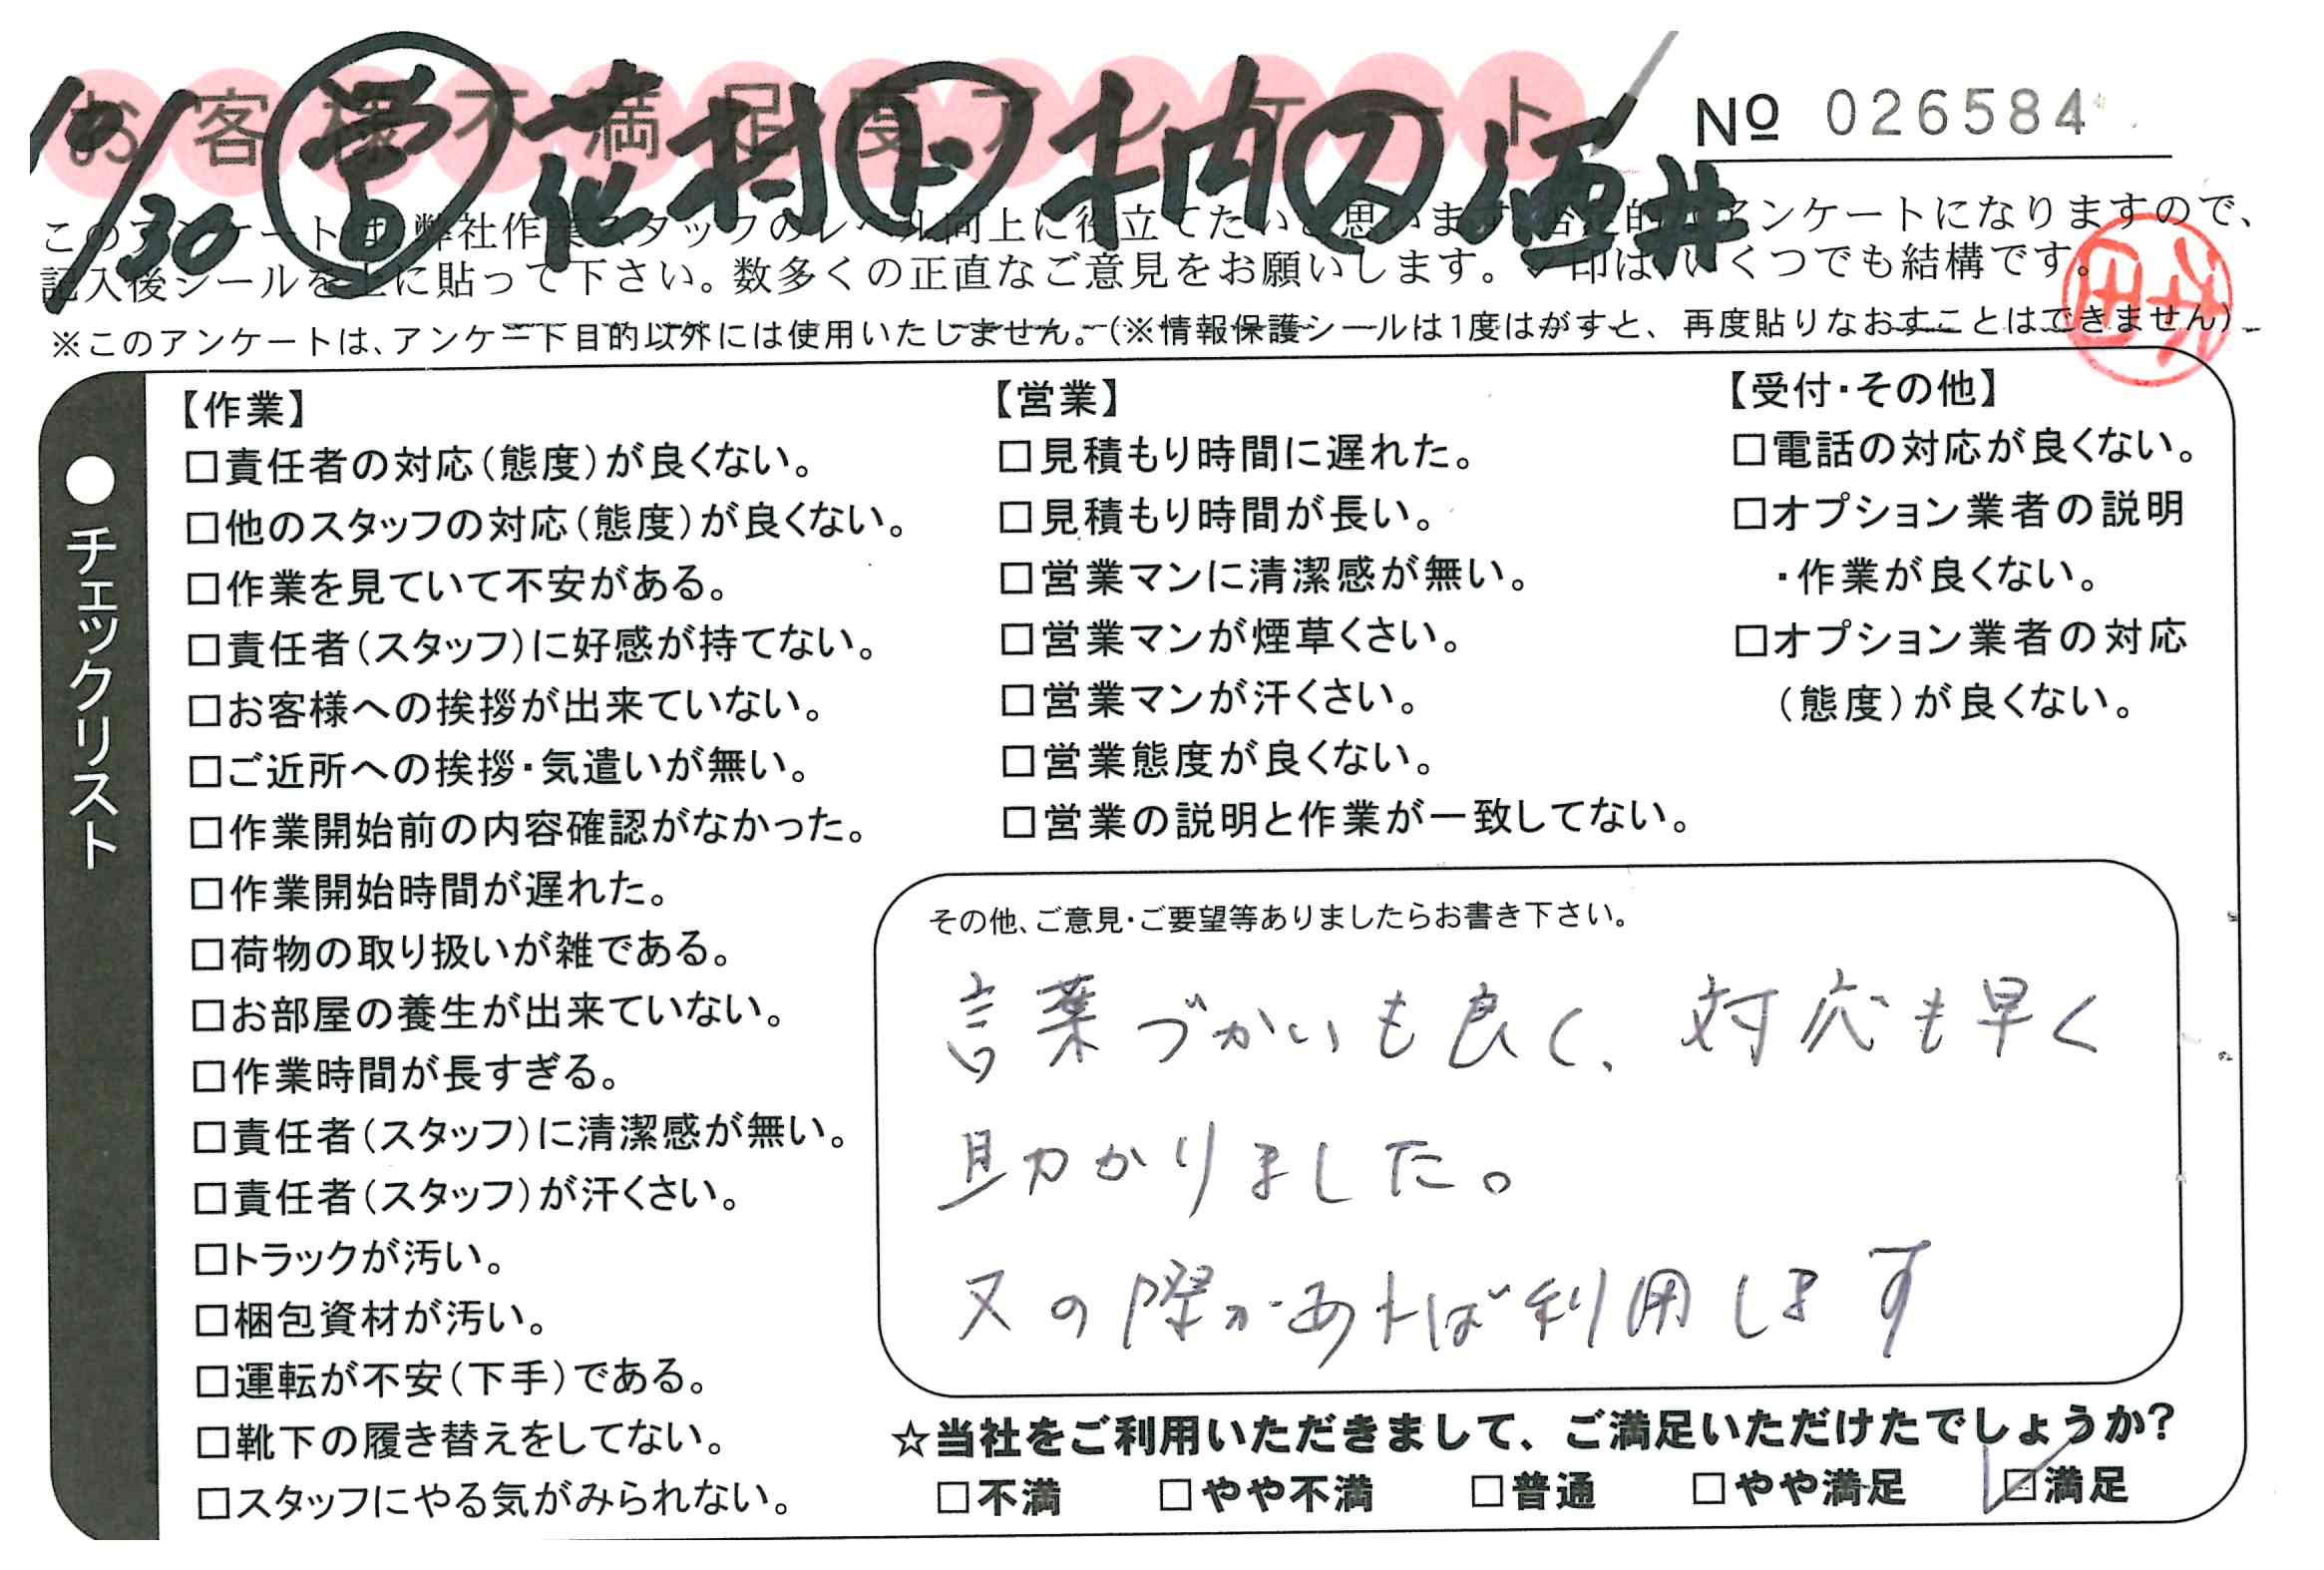 お客様不満足度アンケート
№ 026584
10/30 営 花村 ト 木内 ス 酒井
このアンケートは、弊社作業スタッフのレベル向上に役立てたいと思います。否定的なアンケートになりますので、
記入後シールを上に貼って下さい。数多くの正直なご意見をお願いします。✓印は、いくつでも結構です。
※このアンケートは、アンケート目的以外には使用いたしません。(※情報保護シールは1度はがすと、再度貼りなおすことはできません)
●チェックリスト
【作業】
□責任者の対応(態度)が良くない。
□他のスタッフの対応(態度)が良くない。
□作業を見ていて不安がある。
□責任者(スタッフ)に好感が持てない。
□お客様への挨拶が出来ていない。
□ご近所への挨拶・気遣いが無い。
□作業開始前の内容確認がなかった。
□作業開始時間が遅れた。
□荷物の取り扱いが雑である。
□お部屋の養生が出来ていない。
□作業時間が長すぎる。
□責任者(スタッフ)に清潔感が無い。
□責任者(スタッフ)が汗くさい。
□トラックが汚い。
□梱包資材が汚い。
□運転が不安(下手)である。
□靴下の履き替えをしてない。
□スタッフにやる気がみられない。
【営業】
□見積もり時間に遅れた。
□見積もり時間が長い。
□営業マンに清潔感が無い。
□営業マンが煙草くさい。
□営業マンが汗くさい。
□営業態度が良くない。
□営業の説明と作業が一致してない。
【受付・その他】
□電話の対応が良くない。
□オプション業者の説明
・作業が良くない。
□オプション業者の対応
(態度)が良くない。
その他、ご意見・ご要望等ありましたらお書き下さい。
言葉づかいも良く、対応も早く
助かりました。
又の際があれば利用します
☆当社をご利用いただきまして、ご満足いただけたでしょうか?
□不満 □やや不満 □普通 □やや満足 ☑満足